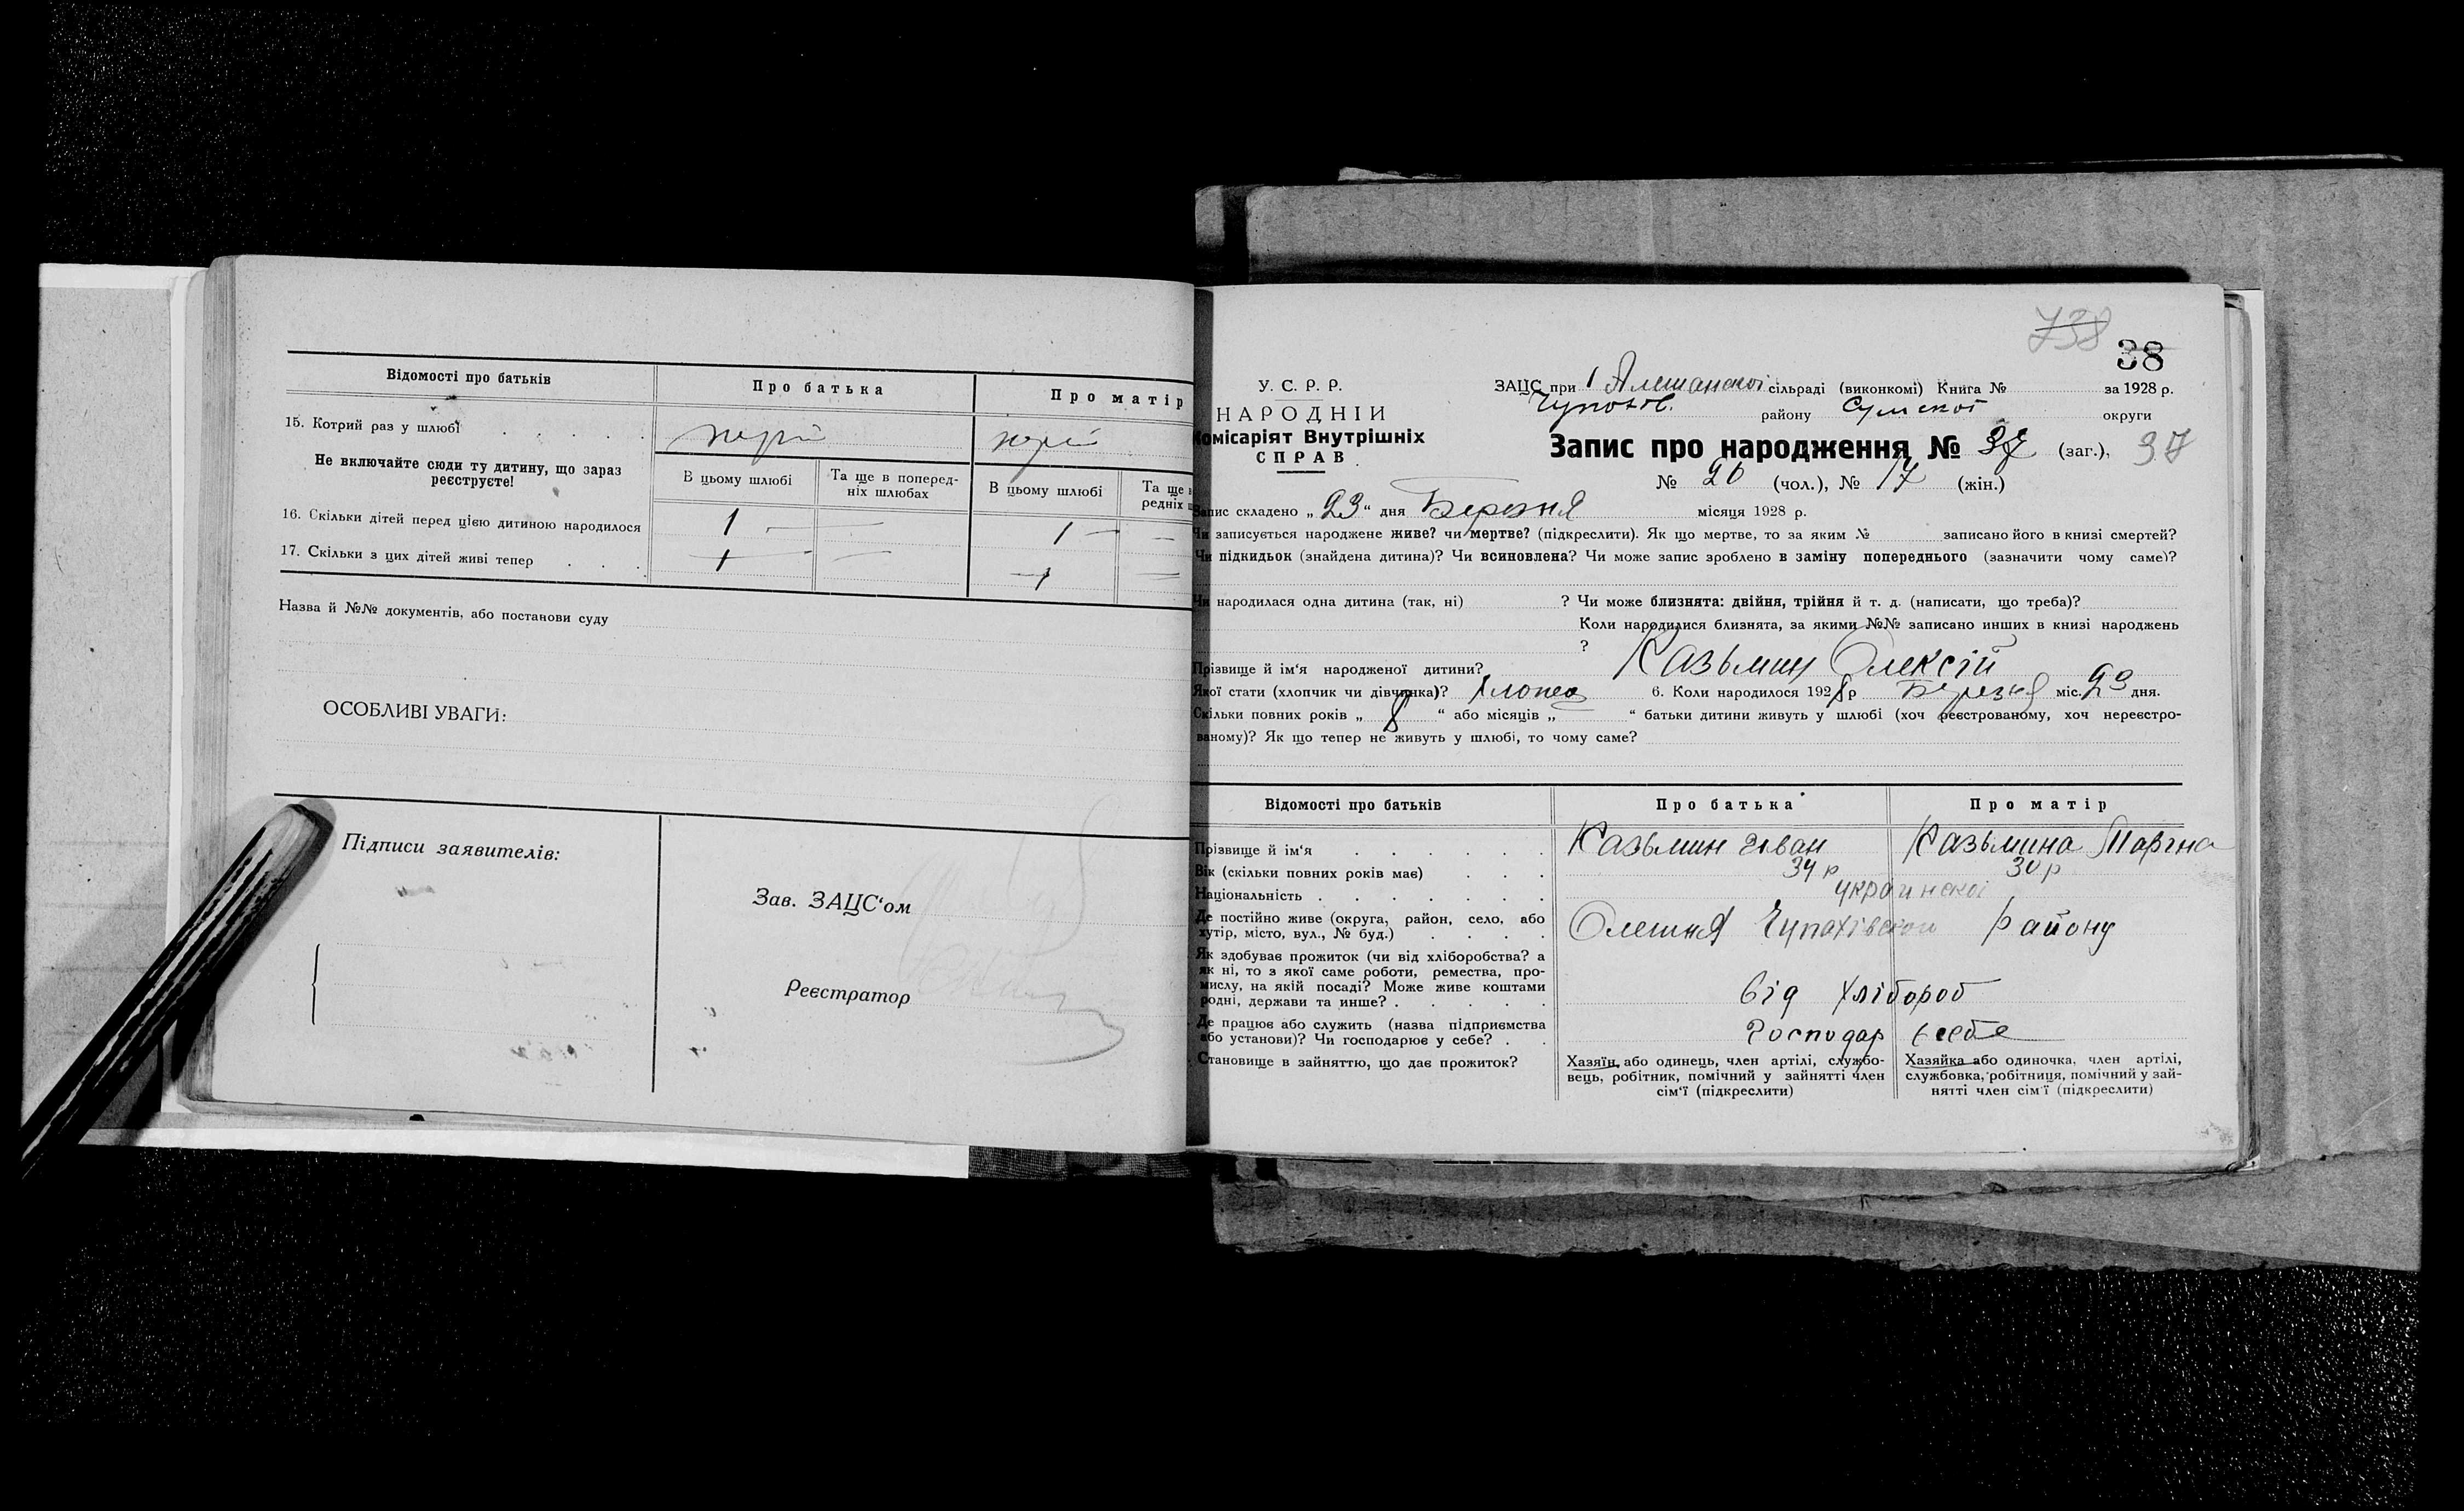 Відомості про батьків
Про батька
Про матір
15. Котрий раз у шлюбі
Не включайте сюди ту дитину, що зараз реєструєте!
В цьому шлюбі
Та ще в поперед-
ніх шлюбах
В цьому шлюбі
Та ще
редніх
16. Скільки дітей перед цією дитиною народилося 1 — — 1 — —
17. Скільки з цих дітей живі тепер 1 — — 1 —
Назва й №№ документів, або постанови суду
ОСОБЛИВІ УВАГИ:
Підписи заявителів:
Зав. ЗАЦС‘ом
Реєстратор
738
38
У. С. Р. Р.
НАРОДНІЙ
Комісаріят Внутрішніх
СПРАВ
ЗАЦС при Алешанской сільраді (виконкомі) Книга № за 1928 р.
Чупахов. району Сумской округи
Запис про народження № 37 (заг.), 37
№ 20 (чол.), № 17 (жін.)
Запис складено „ 23 “ дня Березня місяця 1928 р.
Чи записується народжене живе? чи мертве? (підкреслити). Як що мертве, то за яким № записано його в книзі смертей?
Чи підкидьок (знайдена дитина)? Чи всиновлена? Чи може запис зроблено в заміну попереднього (зазначити чому саме)?
Чи народилася одна дитина (так, ні) ? Чи може близнята: двійня, трійня й т. д. (написати, що треба)?
Коли народилися близнята, за якими №№ записано инших в книзі народжень
?
Прізвище й ім‘я народженої дитини? Казьмин Олексій
Якої стати (хлопчик чи дівчинка)? хлопец 6. Коли народилося 1928 р Березня міс. 23 дня.
Скільки повних років „ 8 “ або місяців „ “ батьки дитини живуть у шлюбі (хоч реєстрованому, хоч нереєстро-
ваному)? Як що тепер не живуть у шлюбі, то чому саме?
Відомості про батьків
Про батька
Про матір
Прізвище й ім‘я Казьмин Иван Казьмина Марина
Вік (скільки повних років має) 34 р 30 р
Національність украинскоі
Де постійно живе (округа, район, село, або
хутір, місто, вул., № буд.) Олешня Чупахівского Району
Як здобуває прожиток (чи від хліборобства? а
як ні, то з якої саме роботи, ремества, про-
мислу, на якій посаді? Може живе коштами
родні, держави та инше? від хлібороб
Де працює або служить (назва підприємства
або установи)? Чи господарює у себе? Господар у себе
Становище в зайняттю, що дає прожиток?
Хазяїн або одинець, член артілі, службо-
вець, робітник, помічний у зайнятті член
сім‘ї (підкреслити)
Хазяйка або одиночка, член артілі,
службовка, робітниця, помічний у зай-
нятті член сім‘ї (підкреслити)